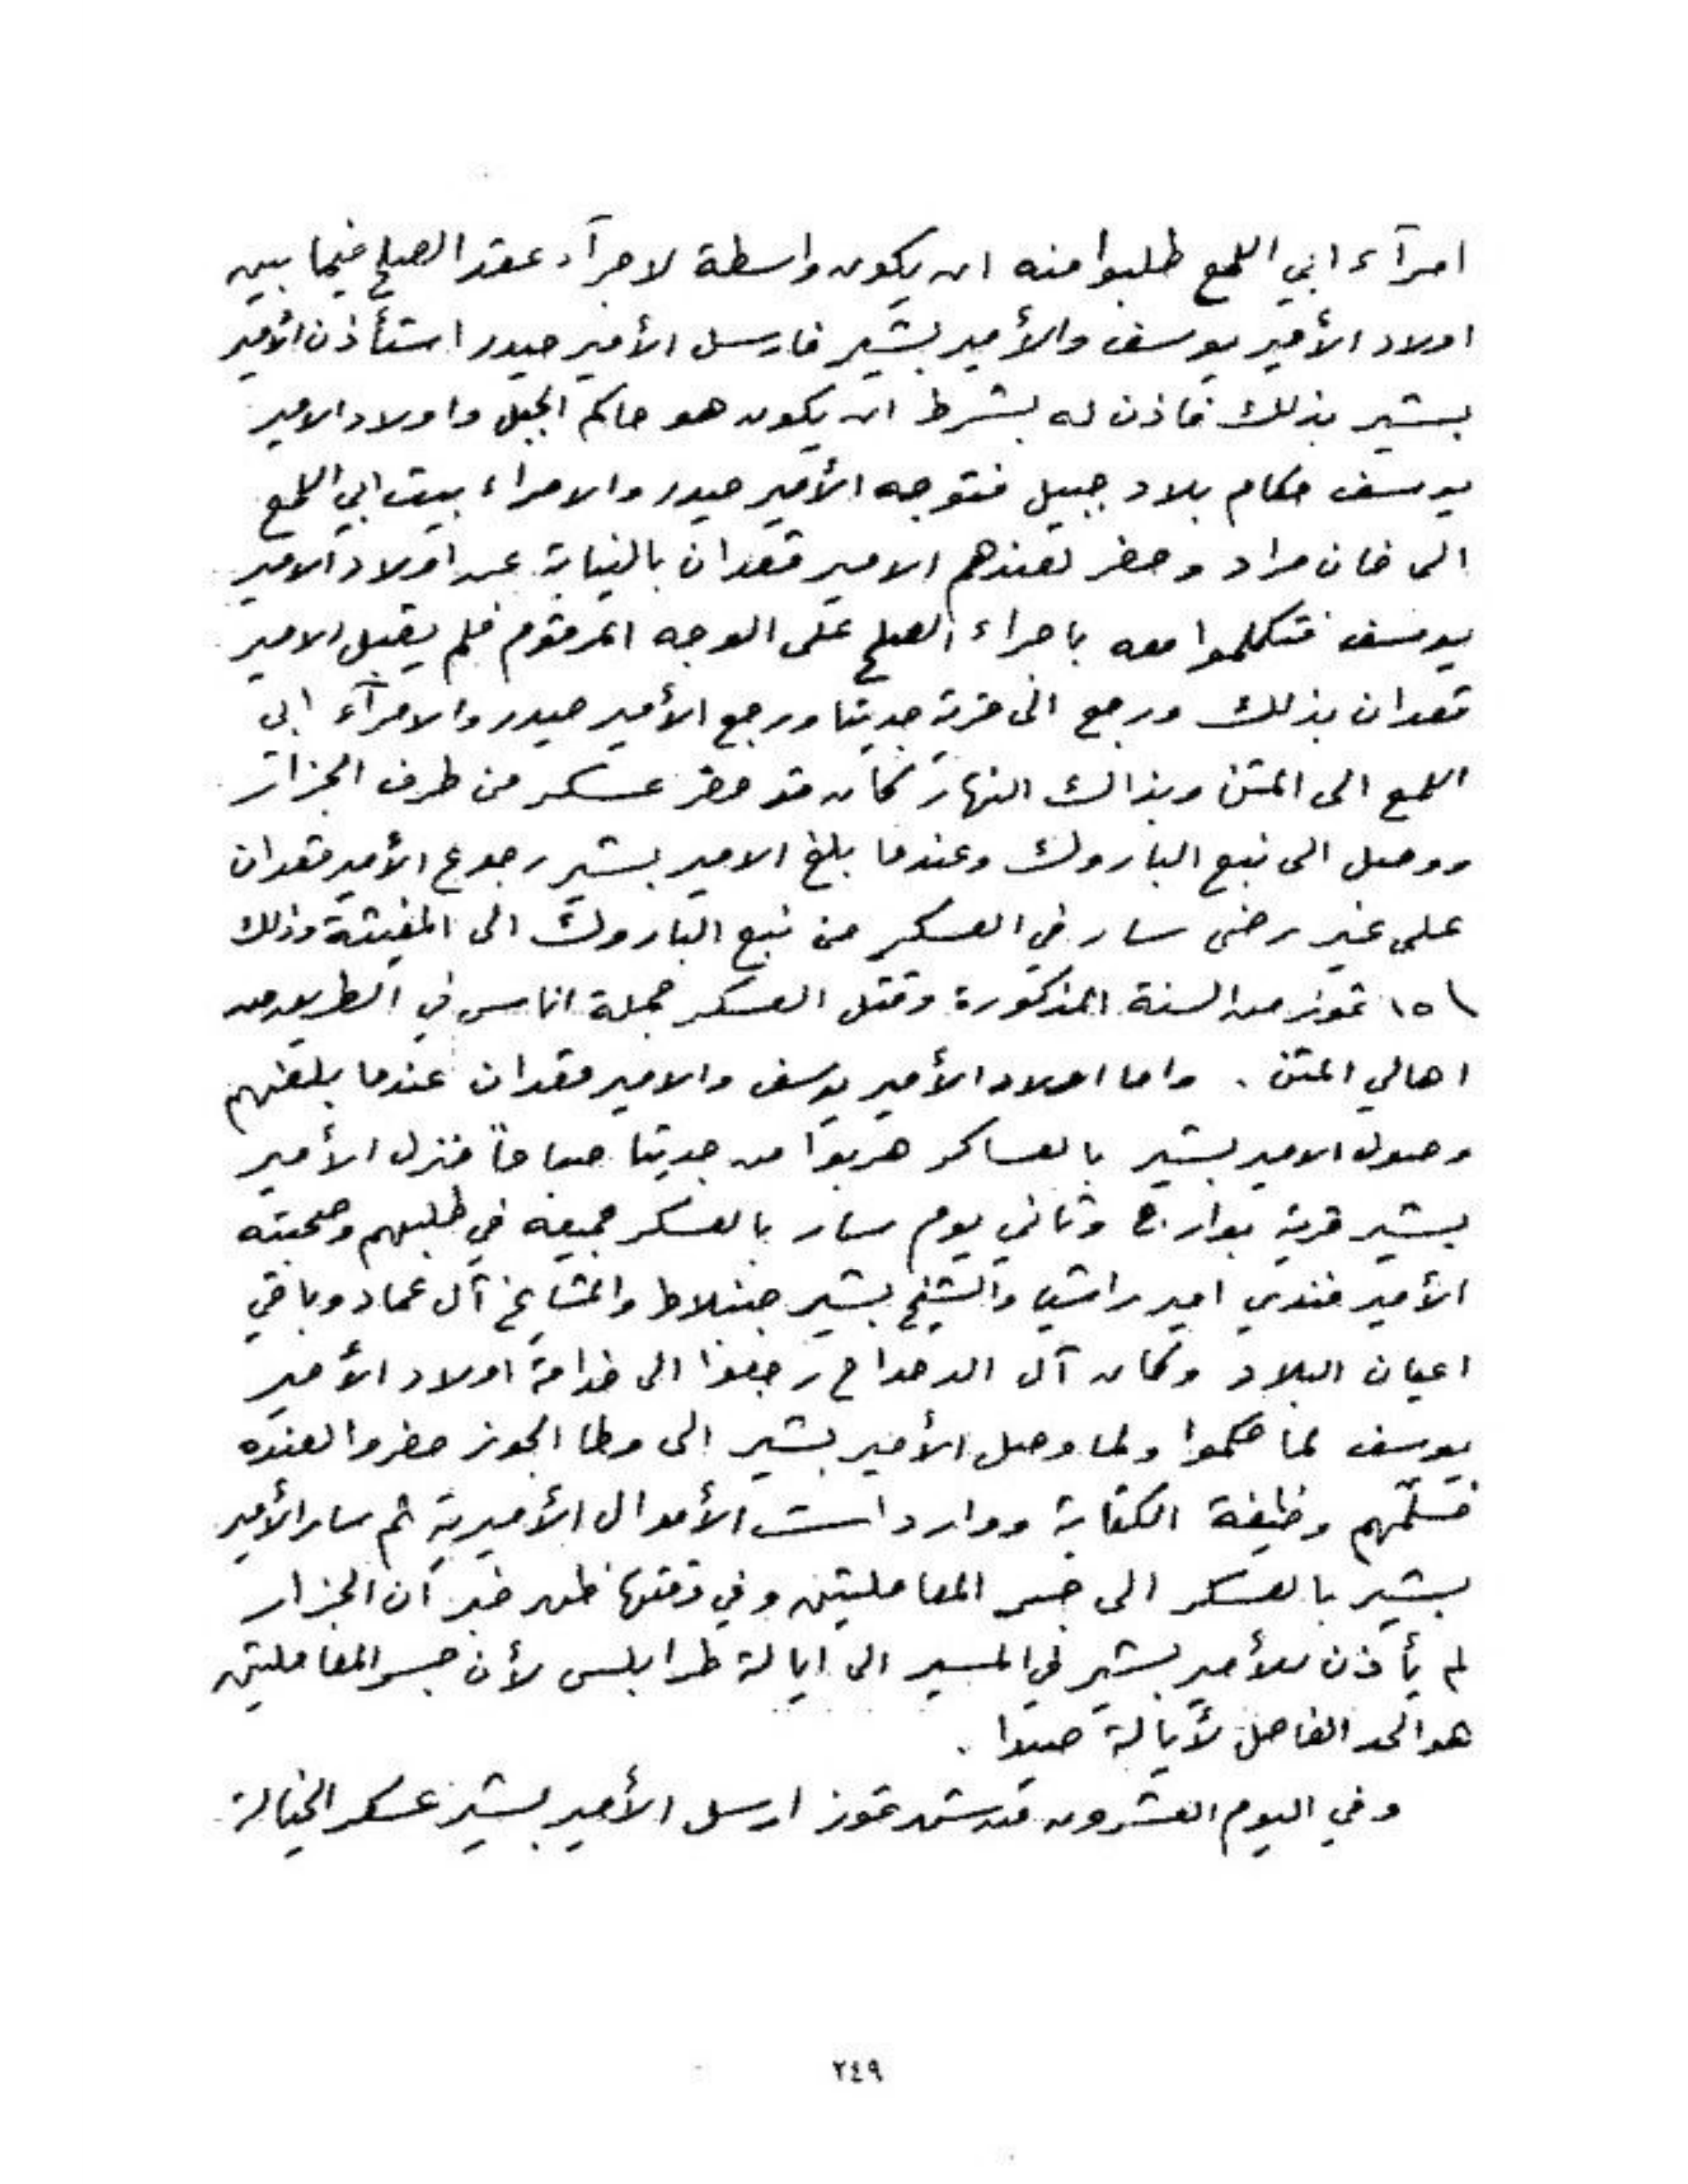 امرآء ابي اللمع طلبوا منه ان يكون واسطة لاجرآء عقد الصلح فيما بين
اولاد الأمير يوسف والأمير بشير فارسل الأمير حيدر استأذن الأمير
بشير بذلك فاذن له بشرط ان يكون هو حاكم الجبل واولاد الامير
يوسف حكام بلاد جبيل فتوجه الأمير حيدر والامراء بيت ابي اللمع
الى خان مراد وحضر لعندهم الامير قعدان بالنيابة عن اولاد الامير
يوسف فتكلموا معه باجراء الصلح على الوجه المرقوم فلم يقبل الامير
قعدان بذلك ورجع الى قرية جديتا ورجع الأمير حيدر والامرآء ابي
اللمع الى المتن وبذاك النهار كان قد حضر عسكر من طرف الجزار
ووصل الى نبع الباروك وعندما بلغ الامير بشير رجوع الأمير قعدان
على غير رضى سار في العسكر من نبع الباروك الى المغيثة وذلك
١٥ تموز من السنة المذكورة وقتل العسكر جملة اناس في الطريق من
اهالي المتن . واما اولاد الأمير يوسف والامير قعدان عندما بلغهم
وصول الامير بشير بالعساكر هربوا من جديتا صباحاً فنزل الأمير
بشير قرية بوارج وثاني يوم سار بالعسكر جميعه في طلبهم وصحبته
الأمير فندي امير راشيا والشيخ بشير جنبلاط والمشايخ آل عماد وباقي
اعيان البلاد وكان آل الدحداح رجعوا الى خدامة اولاد الأمير
يوسف لما حكموا ولما وصل الأمير بشير الى وطا الجوز حضروا لعنده
فسلّمهم وظيفة الكتابة وواردات الأموال الأميرية ثم سار الأمير
بشير بالعسكر الى جسر المعاملتين وفي وقتها ظهر خبر ان الجزار
لم يأذن للأمير بشير في المسير الى ايالة طرابلس لأن جسر المعاملتين
هو الحد الفاصل لأيالة صيدا .
وفي اليوم العشرون من شهر تموز ارسل الأمير بشير عسكر الخيالة
٢٤٩